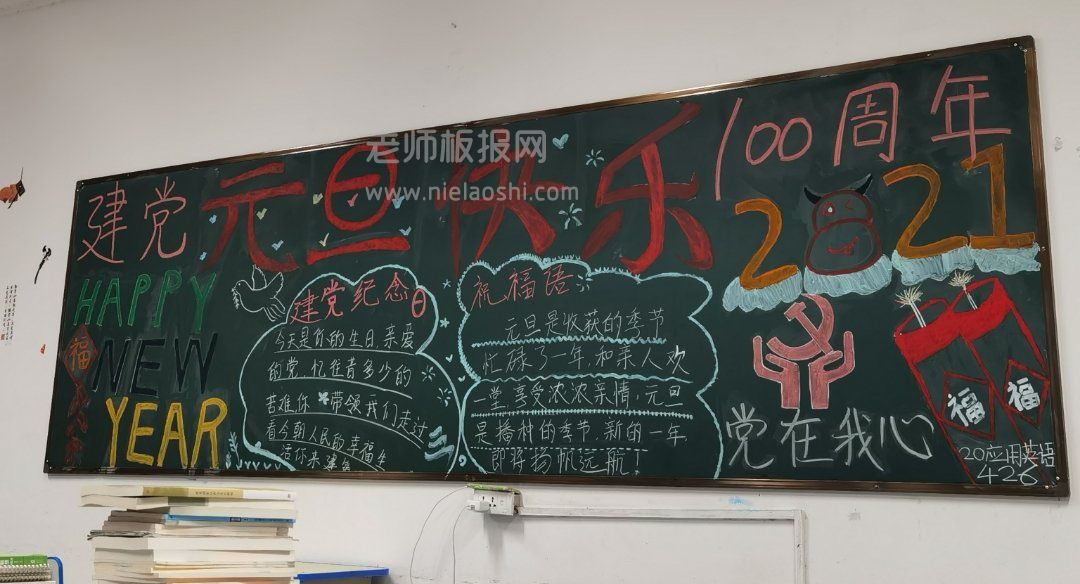 老师板报网
www.nielaoshi.com
建党
元旦快乐
100周年
2021
HAPPY
NEW
YEAR
福
建党纪念日
今天是你的生日,亲爱
的党,忆往昔多少的
苦难你 带领我们走过
看今朝人民的幸福生
活你来建
祝福语:
元旦是收获的季节
忙碌了一年和亲人欢
一堂,享受浓浓亲情,元旦
是播种的季节,新的一年
即将扬帆远航!
党在我心
福
福
20应用英语
426